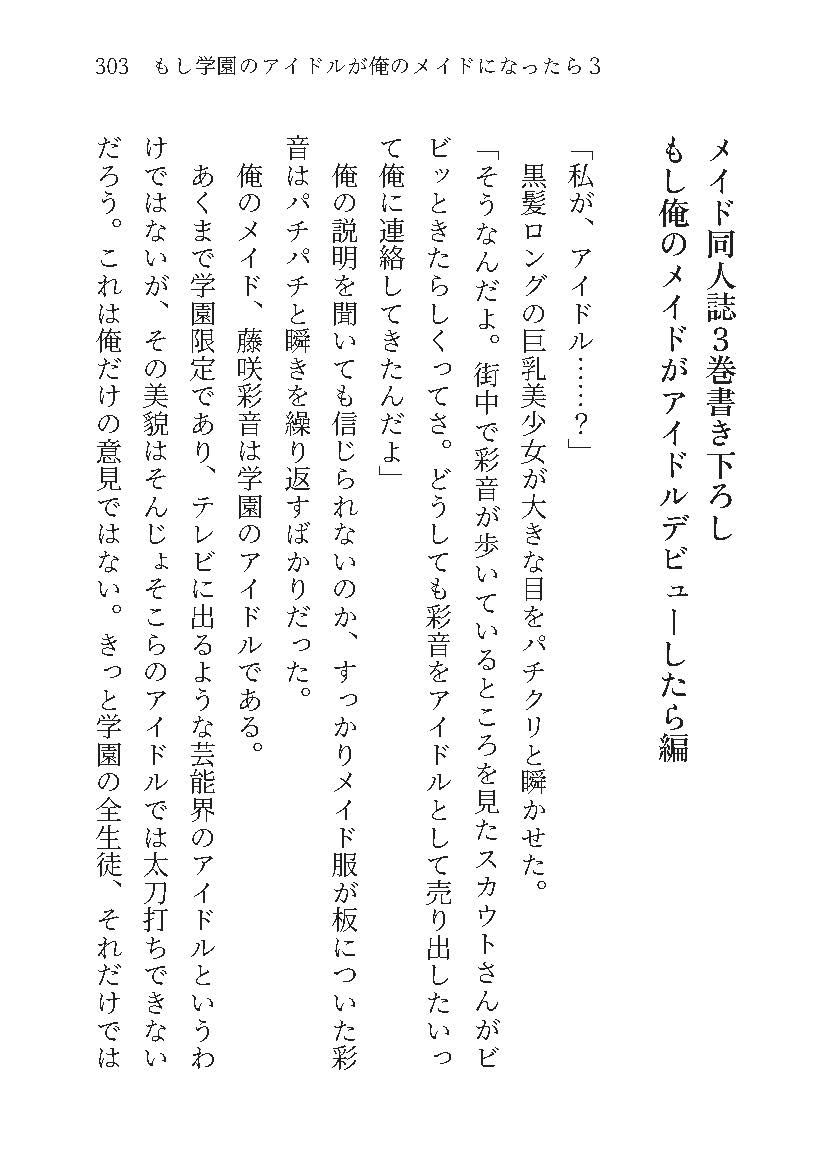 303 もし学園のアイドルが俺のメイドになったら３
メイド同人誌３巻書き下ろし
もし俺のメイドがアイドルデビューしたら編
「私が、アイドル……？」
黒髪ロングの巨乳美少女が大きな目をパチクリと瞬かせた。
「そうなんだよ。街中で彩音が歩いているところを見たスカウトさんがビ
ビッときたらしくってさ。どうしても彩音をアイドルとして売り出したいっ
て俺に連絡してきたんだよ」
俺の説明を聞いても信じられないのか、すっかりメイド服が板についた彩
音はパチパチと瞬きを繰り返すばかりだった。
俺のメイド、藤咲彩音は学園のアイドルである。
あくまで学園限定であり、テレビに出るような芸能界のアイドルというわ
けではないが、その美貌はそんじょそこらのアイドルでは太刀打ちできない
だろう。これは俺だけの意見ではない。きっと学園の全生徒、それだけでは